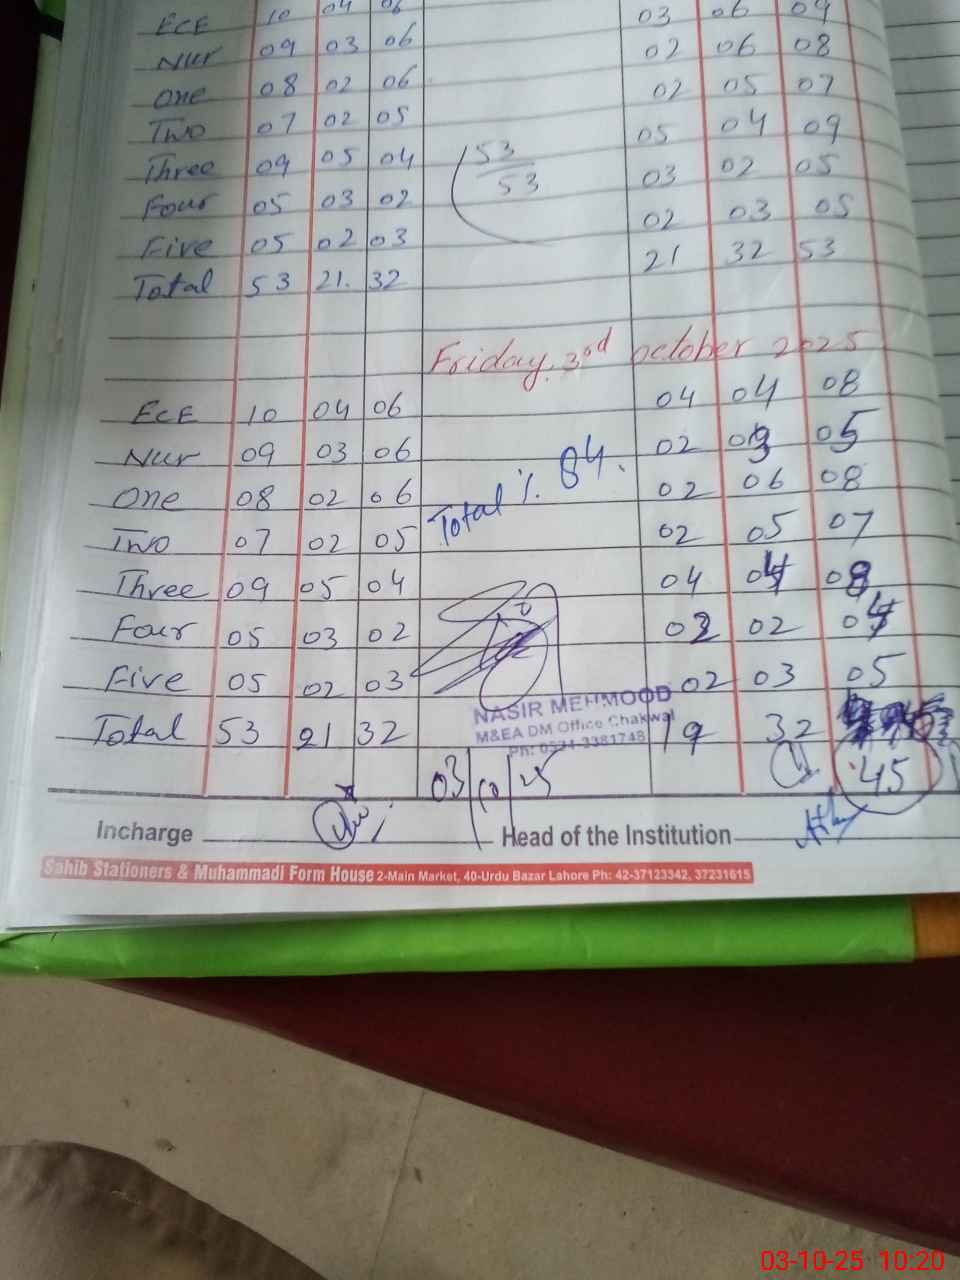 ECE 10 04 06 03 06 09
Nur 09 03 06 02 06 08
One 08 02 06 02 05 07
Two 07 02 05 05 04 09
Three 09 05 04 53 03 02 05
Four 05 03 02 53 02 03 05
Five 05 02 03 21 32 53
Total 53 21. 32
Friday, 3rd october 2025
ECE 10 04 06 04 04 08
Nur 09 03 06 02 03 05
One 08 02 06 Total %. 84. 02 06 08
Two 07 02 05 02 05 07
Three 09 05 04 04 04 08
Four 05 03 02 02 02 04
Five 05 02 03 02 03 05
NASIR MEHMOOD
Total 53 21 32 M&EA DM Office Chakwal 19 32
Ph: 0331-3381748
03/10/25 45
Incharge Head of the Institution
Sahib Stationers & Muhammadi Form House 2-Main Market, 40-Urdu Bazar Lahore Ph: 42-37123342, 37231615
03-10-25 10:20